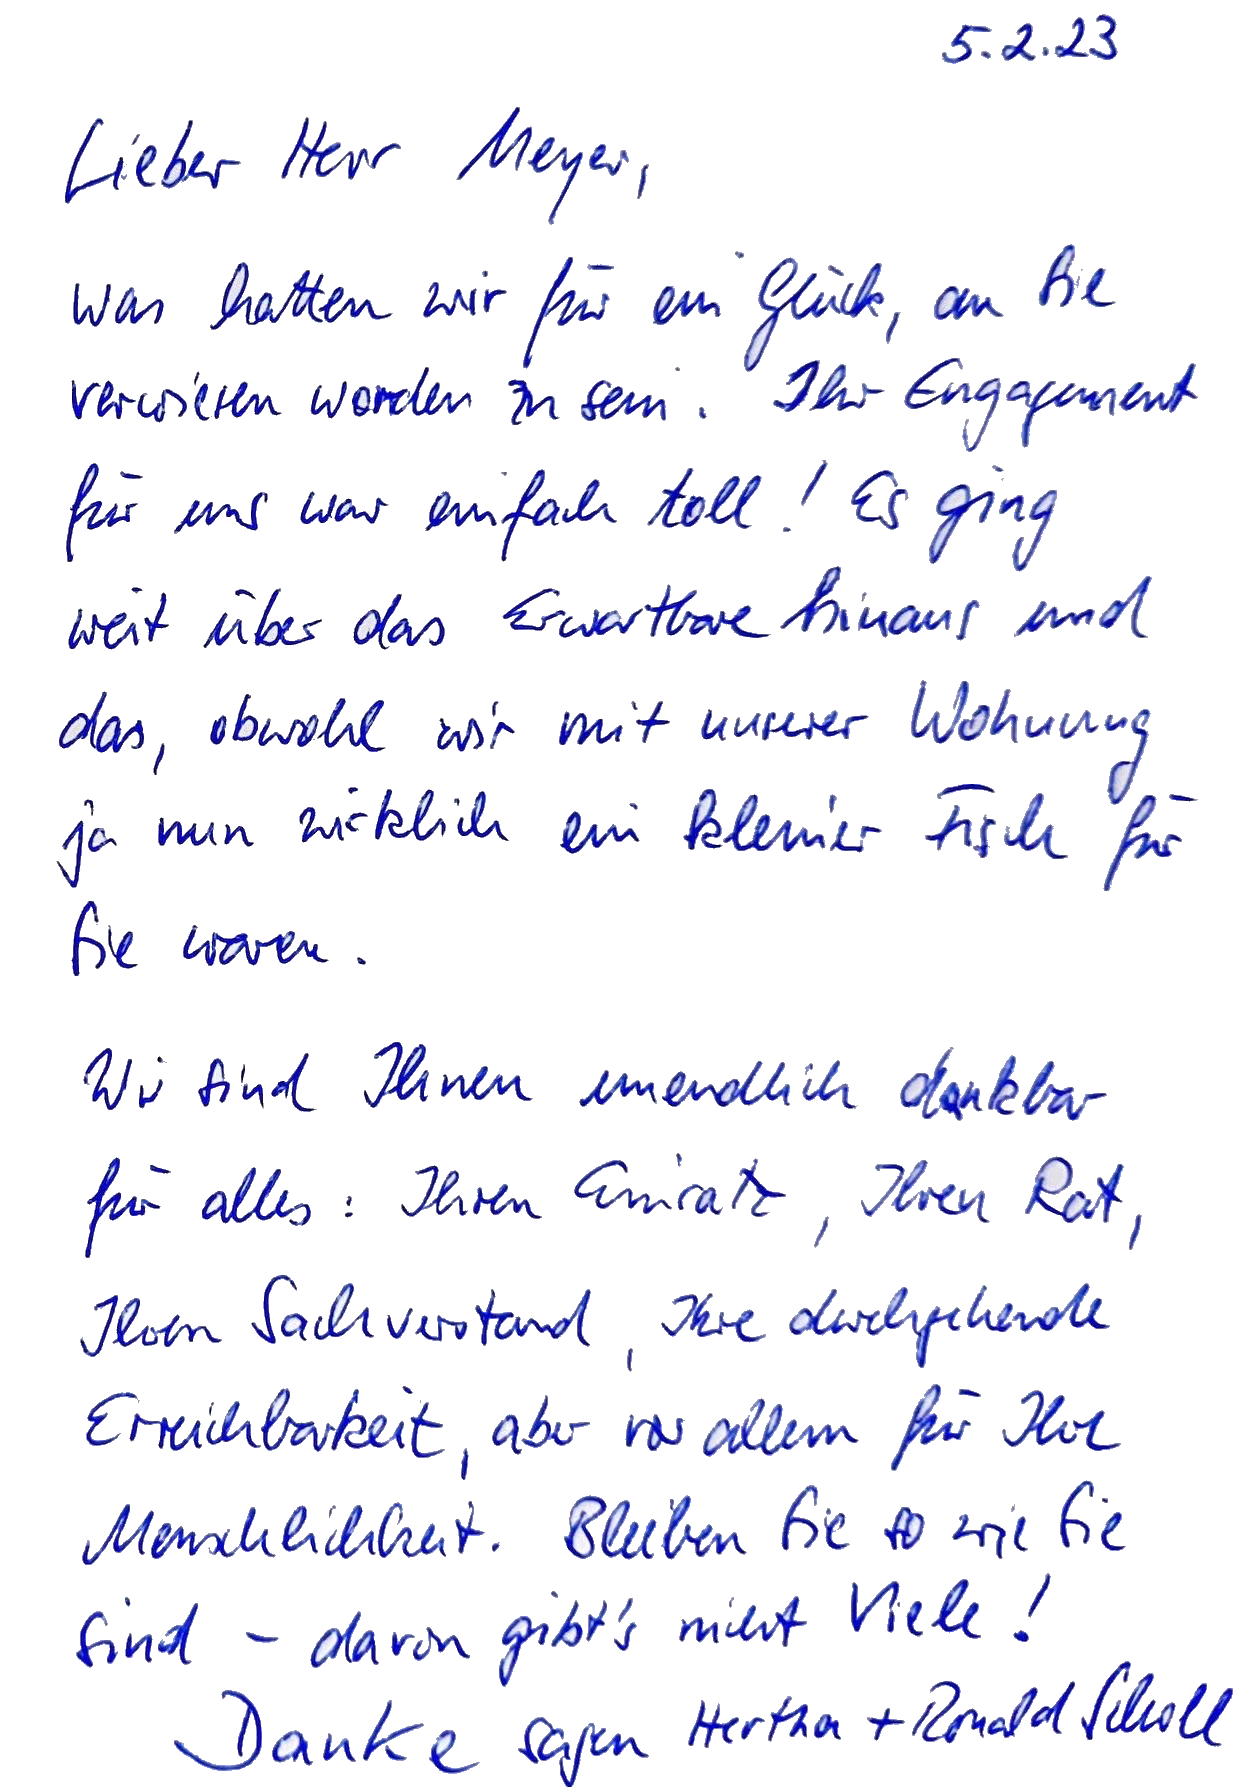 5.2.23
Lieber Herr Meyer,
was hatten wir für ein Glück, an Sie
verwiesen worden zu sein. Ihr Engagement
für uns war einfach toll! Es ging
weit über das Erwartbare hinaus und
das, obwohl wir mit unserer Wohnung
ja nun wirklich ein kleiner Fisch für
Sie waren.
Wir sind Ihnen unendlich dankbar
für alles: Ihren Einsatz, Ihren Rat,
Ihren Sachverstand, Ihre durchgehende
Erreichbarkeit, aber vor allem für Ihre
Menschlichkeit. Bleiben Sie so wie Sie
sind - davon gibt's nicht Viele!
Danke sagen Hertha + Ronald Scholl